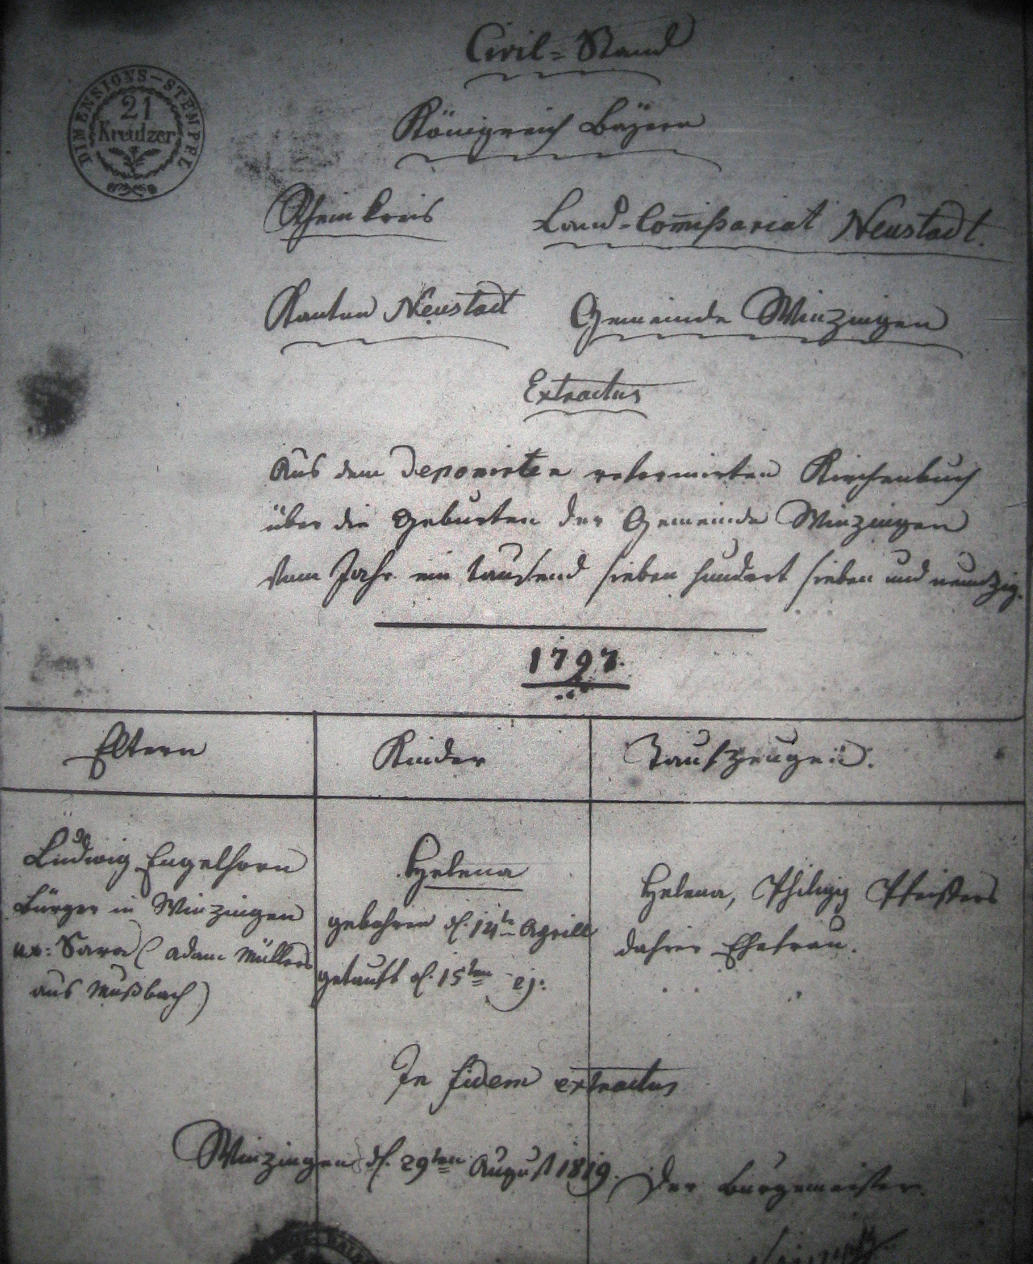 DIMENSIONS-STEMPEL
21
Kreutzer
Civil=Stand
Königreich Bayern
Rheinkreis Land-Com̅ißariat Neustadt.
Kanton Neustadt Gemeinde Winzingen
Extractus
Aus dem deponirten reformirten Kirchenbuch
über die Geburten der Gemeinde Winzingen
vom Jahr ein tausend sieben hundert sieben und neunzig.
1797.
Eltern Kinder Taufzeugen.
Ludwig Engelhorn
Bürger in Winzingen
ux: Sara (Adam Müllers
aus Mußbach)
Helena
gebohren d. 14te Aprill
getauft d. 15ten ej:
Helena, Philipp Pfisters
dahier Ehefrau.
In fidem extractus
Winzingen d. 29ten August 1819. Der Bürgermeister.